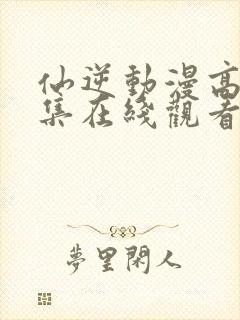 仙逆動漫高
集在綫觀看
夢里閑人